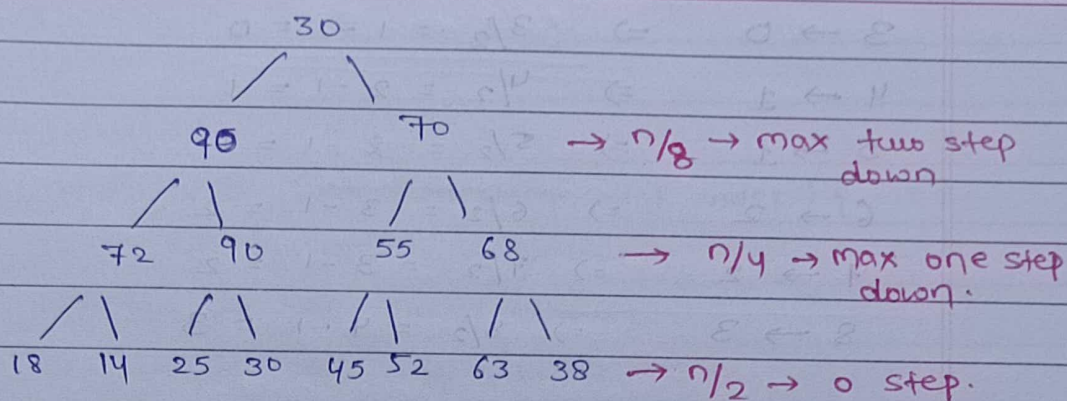 30
70 → n/8 → max two step
down
72 90 55 68 → n/4 → max one step
down.
18 14 25 30 45 52 63 38 → n/2 → 0 step.